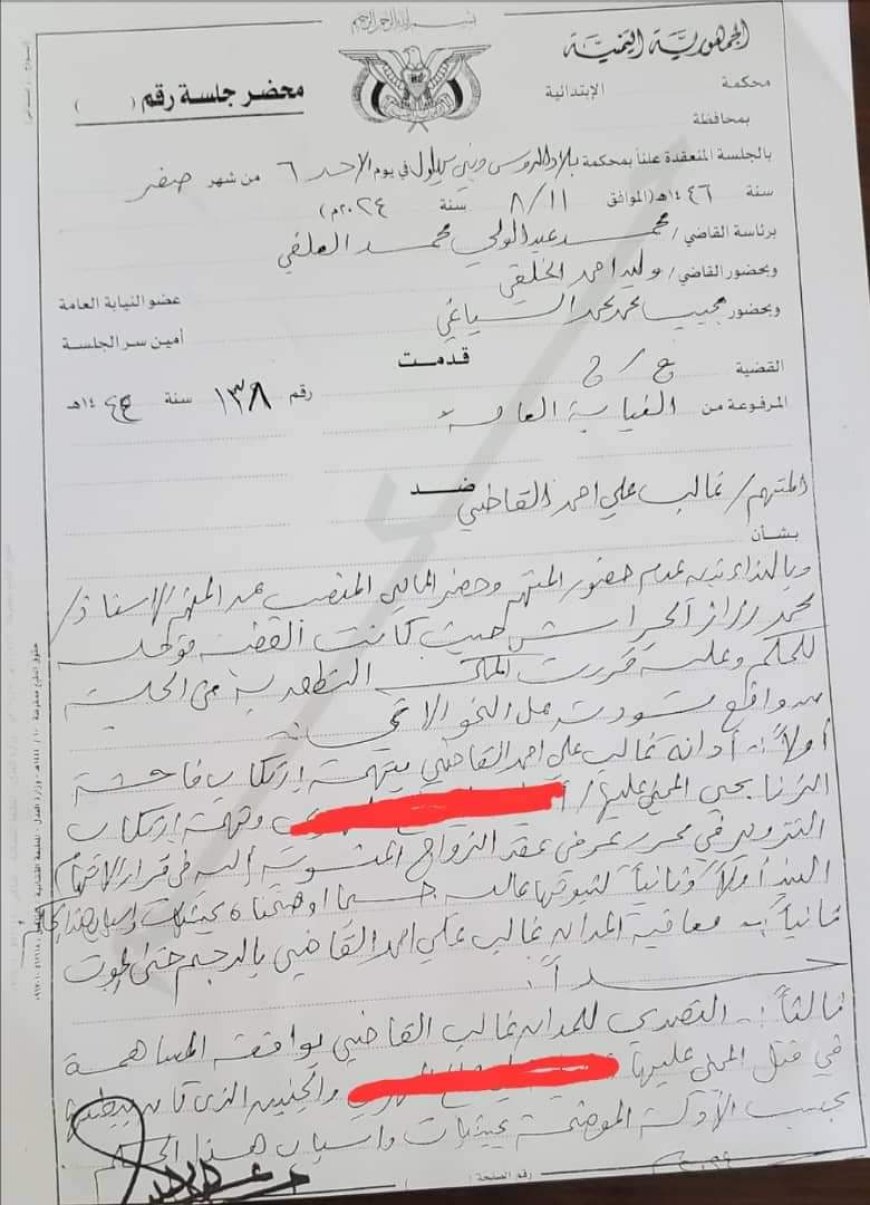 بسم الله الرحمن الرحيم
الجمهورية اليمنية
محكمة الإبتدائية
بمحافظة
محضر جلسة رقم ( )
بالجلسة المنعقدة علناً بمحكمة بلاد الروس وبني بهلول في يوم الاحد ٦ من شهر صفر
سنة ١٤٤٦هـ (الموافق ٨/١١ سنة ٢٠٢٤م)
برئاسة القاضي/ محمد عبدالولي محمد العلفي
وبحضور القاضي/ وليد احمد الخلقي عضو النيابة العامة
وبحضور مجيب محمد محمد السياغي أمين سر الجلسة
القضية ج/ج قدمت
المرفوعة من النيابة العامة رقم ١٣٨ سنة ١٤٤٥هـ
ضد
المتهم/ غالب علي احمد القاضي
بشأن
وبالنداء تبين عدم حضور المتهم وحضر المحامي المنصب عن المتهم الاستاذ/
محمد رزاز الحراسي حيث كانت القضية مؤجلة
للحكم وعليه قررت المحكمة النطق به من الجلسة
من واقع مسودته على النحو الاتي
أولاً:- أدانة غالب علي احمد القاضي بتهمة إرتكاب فاحشة
الزنا بحق المجني عليها/ وتهمة إرتكاب
التزوير في محرر عرفي عقد الزواج المنسوبة إليه في قرار الاتهام
البند أولاً وثانياً لثبوتها عليه حسبما اوضحناه بحيثيات واسباب هذا الحكم
ثانياً:- معاقبة المدان غالب علي احمد القاضي بالرجم حتى الموت
حداً.
ثالثاً:- التصدي للمدان غالب القاضي بواقعة المساهمة
في قتل المجني عليها والجنين الذي كان ببطنها
بحسب الأدلة الموضحة بحيثيات واسباب هذا الحكم
رقم الصفحة ( )